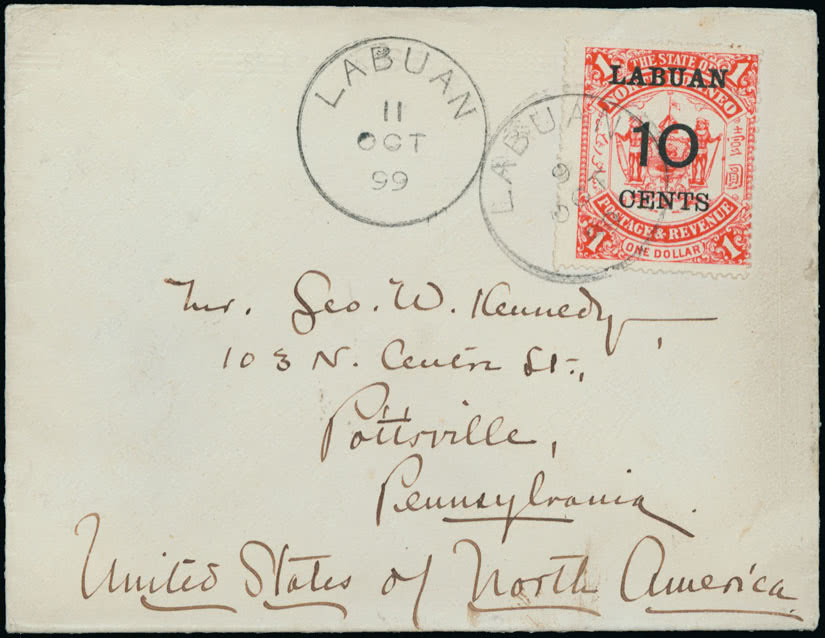 LABUAN
11
OCT
99
LABUAN
9
THE STATE OF
NORTH BORNEO
1 1
LABUAN
10
CENTS
壹圓
POSTAGE & REVENUE
1 ONE DOLLAR 1
Mr. Geo. W. Kennedy,
103 N. Centre St.,
Pottsville,
Pennsylvania.
United States of North America